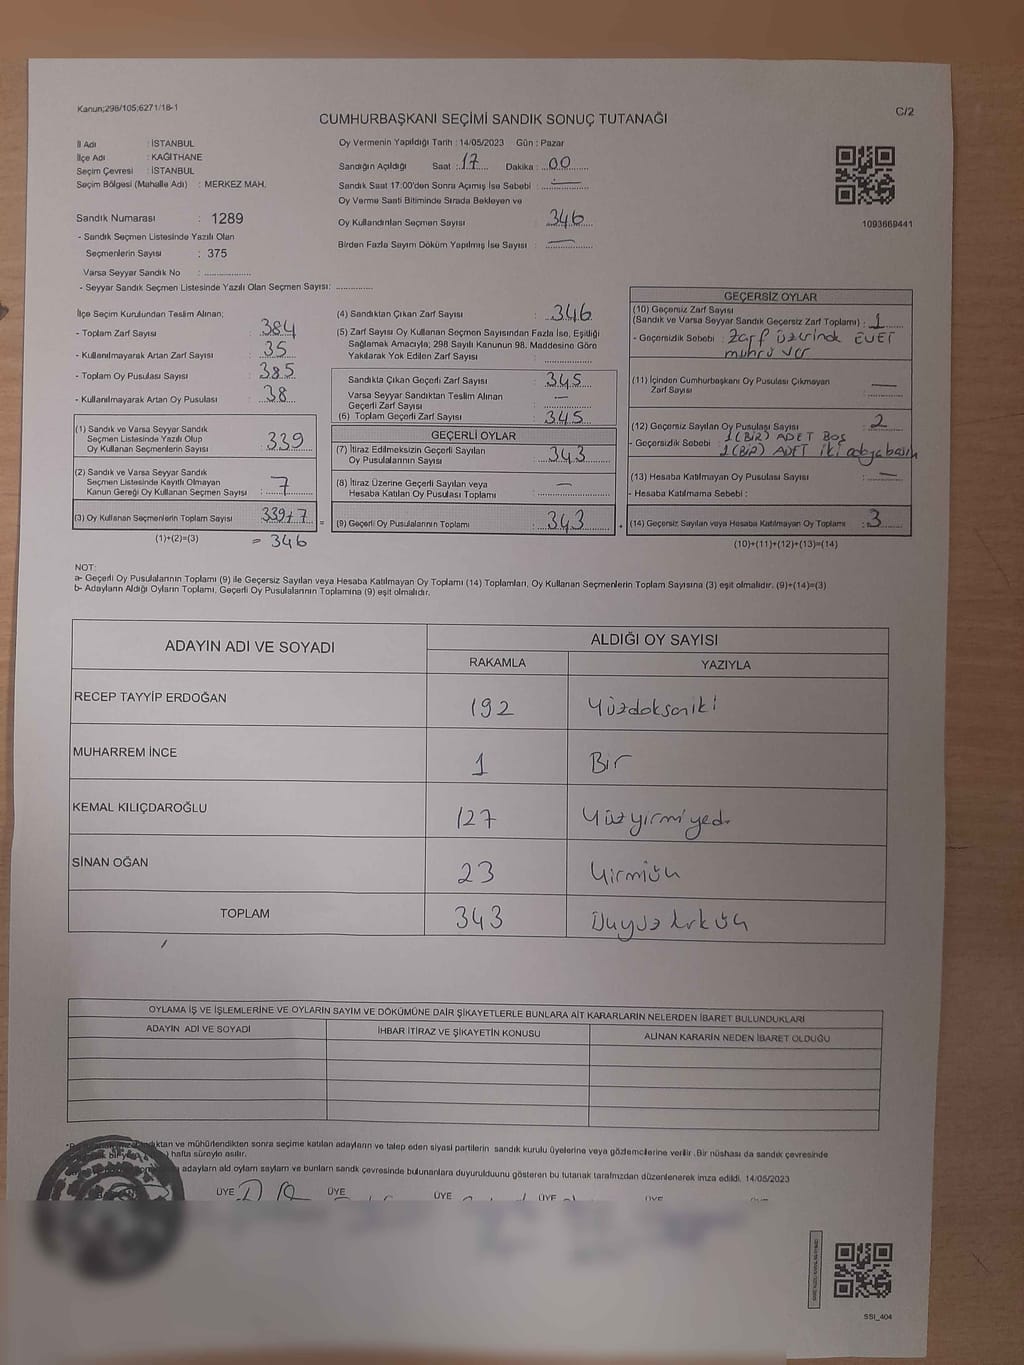 Kanun;298/105;6271/18-1
C/2
CUMHURBAŞKANI SEÇİMİ SANDIK SONUÇ TUTANAĞI
İl Adı : İSTANBUL
İlçe Adı : KAĞITHANE
Seçim Çevresi : İSTANBUL
Seçim Bölgesi (Mahalle Adı) : MERKEZ MAH.
Sandık Numarası : 1289
- Sandık Seçmen Listesinde Yazılı Olan
Seçmenlerin Sayısı : 375
Varsa Seyyar Sandık No : ..............
- Seyyar Sandık Seçmen Listesinde Yazılı Olan Seçmen Sayısı: ............
Oy Vermenin Yapıldığı Tarih : 14/05/2023 Gün : Pazar
Sandığın Açıldığı Saat : 17 Dakika : 00
Sandık Saat 17:00'den Sonra Açımış İse Sebebi : —
Oy Verme Saati Bitiminde Sırada Bekleyen ve
Oy Kullandırılan Seçmen Sayısı : 346
Birden Fazla Sayım Döküm Yapılmış İse Sayısı : —
1093669441
İlçe Seçim Kurulundan Teslim Alınan;
- Toplam Zarf Sayısı : 384
- Kullanılmayarak Artan Zarf Sayısı : 35
- Toplam Oy Pusulası Sayısı : 385
- Kullanılmayarak Artan Oy Pusulası : 38
(1) Sandık ve Varsa Seyyar Sandık
Seçmen Listesinde Yazılı Olup
Oy Kullanan Seçmenlerin Sayısı : 339
(2) Sandık ve Varsa Seyyar Sandık
Seçmen Listesinde Kayıtlı Olmayan
Kanun Gereği Oy Kullanan Seçmen Sayısı : 7
(3) Oy Kullanan Seçmenlerin Toplam Sayısı : 339+7 =
(1)+(2)=(3) = 346
(4) Sandıktan Çıkan Zarf Sayısı : 346
(5) Zarf Sayısı Oy Kullanan Seçmen Sayısından Fazla İse, Eşitliği
Sağlamak Amacıyla; 298 Sayılı Kanunun 98. Maddesine Göre
Yakılarak Yok Edilen Zarf Sayısı : ..............
Sandıkta Çıkan Geçerli Zarf Sayısı : 345
Varsa Seyyar Sandıktan Teslim Alınan
Geçerli Zarf Sayısı : —
(6) Toplam Geçerli Zarf Sayısı : 345
GEÇERLİ OYLAR
(7) İtiraz Edilmeksizin Geçerli Sayılan
Oy Pusulalarının Sayısı : 343
(8) İtiraz Üzerine Geçerli Sayılan veya
Hesaba Katılan Oy Pusulası Toplamı : —
(9) Geçerli Oy Pusulalarının Toplamı : 343 +
GEÇERSİZ OYLAR
(10) Geçersiz Zarf Sayısı
(Sandık ve Varsa Seyyar Sandık Geçersiz Zarf Toplamı) : 1
- Geçersizlik Sebebi : Zarf üzerinde EVET
mührü var
(11) İçinden Cumhurbaşkanı Oy Pusulası Çıkmayan
Zarf Sayısı : —
(12) Geçersiz Sayılan Oy Pusulası Sayısı : 2
- Geçersizlik Sebebi : 1 (BİR) ADET BOŞ
1 (BİR) ADET iki adaya basım
(13) Hesaba Katılmayan Oy Pusulası Sayısı : —
- Hesaba Katılmama Sebebi :
(14) Geçersiz Sayılan veya Hesaba Katılmayan Oy Toplamı : 3
(10)+(11)+(12)+(13)=(14)
NOT:
a- Geçerli Oy Pusulalarının Toplamı (9) ile Geçersiz Sayılan veya Hesaba Katılmayan Oy Toplamı (14) Toplamları, Oy Kullanan Seçmenlerin Toplam Sayısına (3) eşit olmalıdır. (9)+(14)=(3)
b- Adayların Aldığı Oyların Toplamı, Geçerli Oy Pusulalarının Toplamına (9) eşit olmalıdır.
ADAYIN ADI VE SOYADI ALDIĞI OY SAYISI
RAKAMLA YAZIYLA
RECEP TAYYİP ERDOĞAN 192 Yüzdoksaniki
MUHARREM İNCE 1 Bir
KEMAL KILIÇDAROĞLU 127 Yüzyirmiyedi
SİNAN OĞAN 23 Yirmiüç
TOPLAM 343
OYLAMA İŞ VE İŞLEMLERİNE VE OYLARIN SAYIM VE DÖKÜMÜNE DAİR ŞİKAYETLERLE BUNLARA AİT KARARLARIN NELERDEN İBARET BULUNDUKLARI
ADAYIN ADI VE SOYADI İHBAR İTİRAZ VE ŞİKAYETİN KONUSU ALINAN KARARIN NEDEN İBARET OLDUĞU
ve mühürlendikten sonra seçime katılan adayların ve talep eden siyasi partilerin sandık kurulu üyelerine veya gözlemcilerine verilir .Bir nüshası da sandık çevresinde
hafta süreyle asılır.
adayların ald oyların sayların ve bunların sandk çevresinde bulunanlara duyurulduunu gösteren bu tutanak tarafmzdan düzenlenerek imza edildi. 14/05/2023
ÜYE ÜYE ÜYE ÜYE ÜYE
SSİ_404